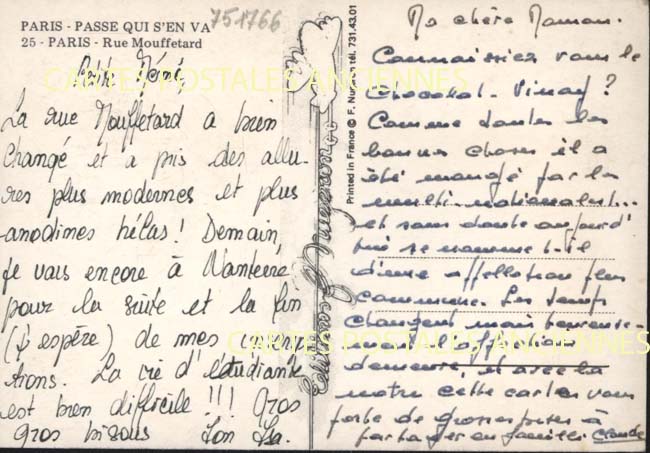 PARIS - PASSE QUI S'EN VA
25 - PARIS - Rue Mouffetard
751766
Petite Mémé
La rue Mouffetard a bien
changé et a pris des allu-
res plus modernes et plus
anodines hélas! Demain,
je vais encore à Nanterre
pour la suite et la fin
(j'espère) de mes
tions. La vie d'étudiante
est bien difficile !!! Gros
Gros bisous Ton Isa.
Printed in France © F. Nugeron tél. 731.43.01
Editions F. Nugeron
Ma chère Maman.
Connaissiez vous le
Chocolat-Vinay?
Comme toutes les
bonnes choses il a
été mangé par les
multi-nationales...
et sans doute aujourd'
hui se nomme-t-il
d'une appellation plus
commune. Les temps
changent mais heureuse-
ment l'affection
demeure, et avec la
notre cette carte vous
porte de grosses bises à
partager en famille. Claude
CARTES POSTALES ANCIENNES
CARTES POSTALES ANCIENNES